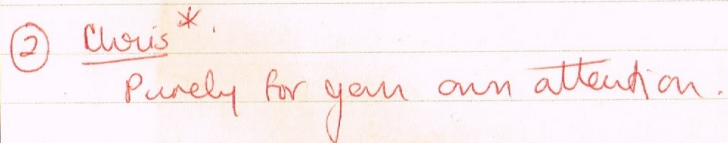 ② Chris*.
Purely for your own attention.